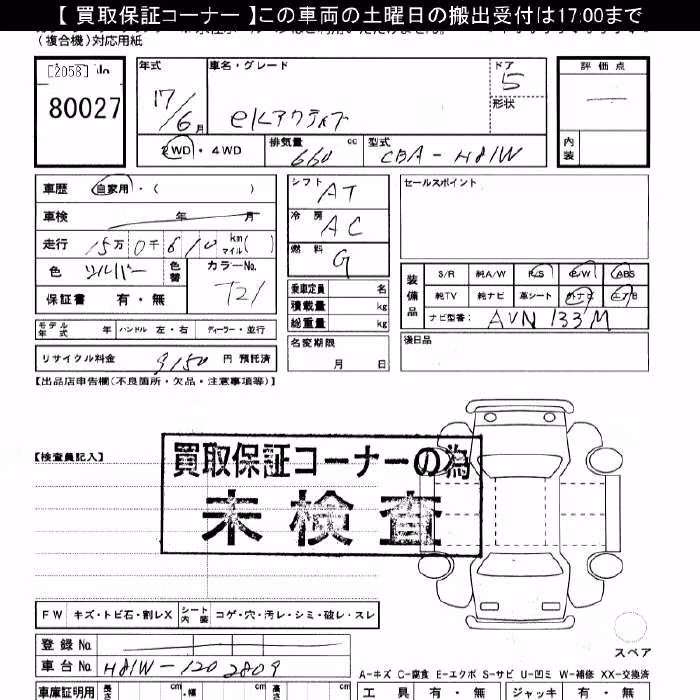 【 買取保証コーナー 】この車両の土曜日の搬出受付は17:00まで
(複合機)対応用紙
[2058] No
80027
年式
17/6月
車名・グレード
eKアクティブ
ドア
5
形状
評価点
内装
2WD・4WD
排気量
660 cc
型式
CBA-H81W
車歴 自家用・( )
車検 年 月
走行 15万 0千 610 km マイル( )
色 シルバー 色替 カラーNo. T21
保証書 有・無
モデル年式 年 ハンドル 左・右 ディーラー・並行
リサイクル料金 9150 円 預託済
シフト AT
冷房 AC
燃料 G
乗車定員 名
積載量 kg
総重量 kg
名変期限
月 日
セールスポイント
装備品
S/R 純A/W P/S P/W ABS
純TV 純ナビ 革シート 外ナビ ETB
ナビ型番: AVN 133M
後日品
【出品店申告欄(不良箇所・欠品・注意事項等)】
【検査員記入】
買取保証コーナーの為
未検査
FW キズ・トビ石・割レX シート内装 コゲ・穴・汚レ・シミ・破レ・スレ
スペア
登録No.
車台No. H81W-1202809
A-キズ C-腐食 E-エクボ S-サビ U-凹ミ W-補修 XX-交換済
車庫証明用 長さ cm 幅 cm 高さ cm
工具 有・無 ジャッキ 有・無